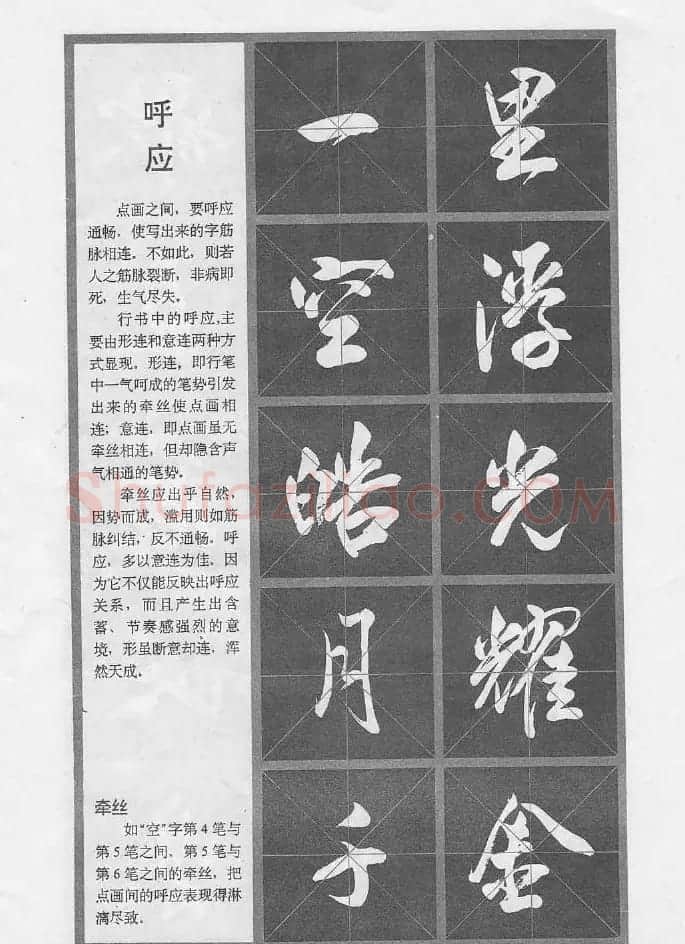 呼应
点画之间，要呼应
通畅，使写出来的字筋
脉相连。不如此，则若
人之筋脉裂断，非病即
死，生气尽失。
行书中的呼应，主
要由形连和意连两种方
式显现。形连，即行笔
中一气呵成的笔势引发
出来的牵丝使点画相
连；意连，即点画虽无
牵丝相连，但却隐含声
气相通的笔势。
牵丝应出乎自然，
因势而成，滥用则如筋
脉纠结，反不通畅。呼
应，多以意连为佳，因
为它不仅能反映出呼应
关系，而且产生出含
蓄、节奏感强烈的意
境，形虽断意却连，浑
然天成。
牵丝
如“空”字第4笔与
第5笔之间，第5笔与
第6笔之间的牵丝，把
点画间的呼应表现得淋
漓尽致。
一空皓月千
里浮光耀金
Shufaziliao.com